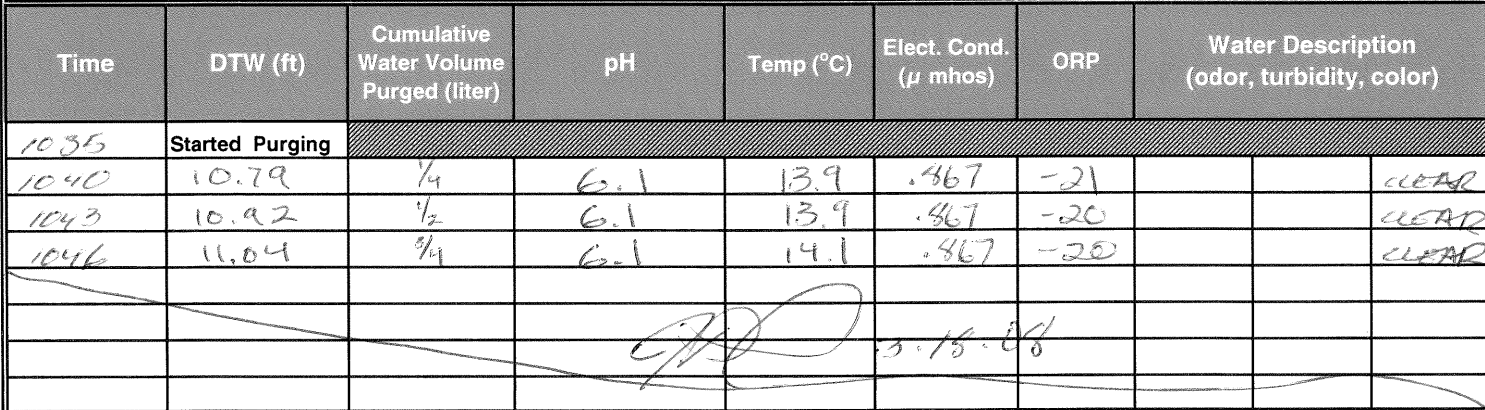 Time DTW (ft) Cumulative Water Volume Purged (liter) pH Temp (°C) Elect. Cond. (μ mhos) ORP Water Description (odor, turbidity, color)
1035 Started Purging
1040 10.79 1/4 6.1 13.9 .867 -21 CLEAR
1043 10.92 1/2 6.1 13.9 .867 -20 CLEAR
1046 11.04 3/4 6.1 14.1 .867 -20 CLEAR